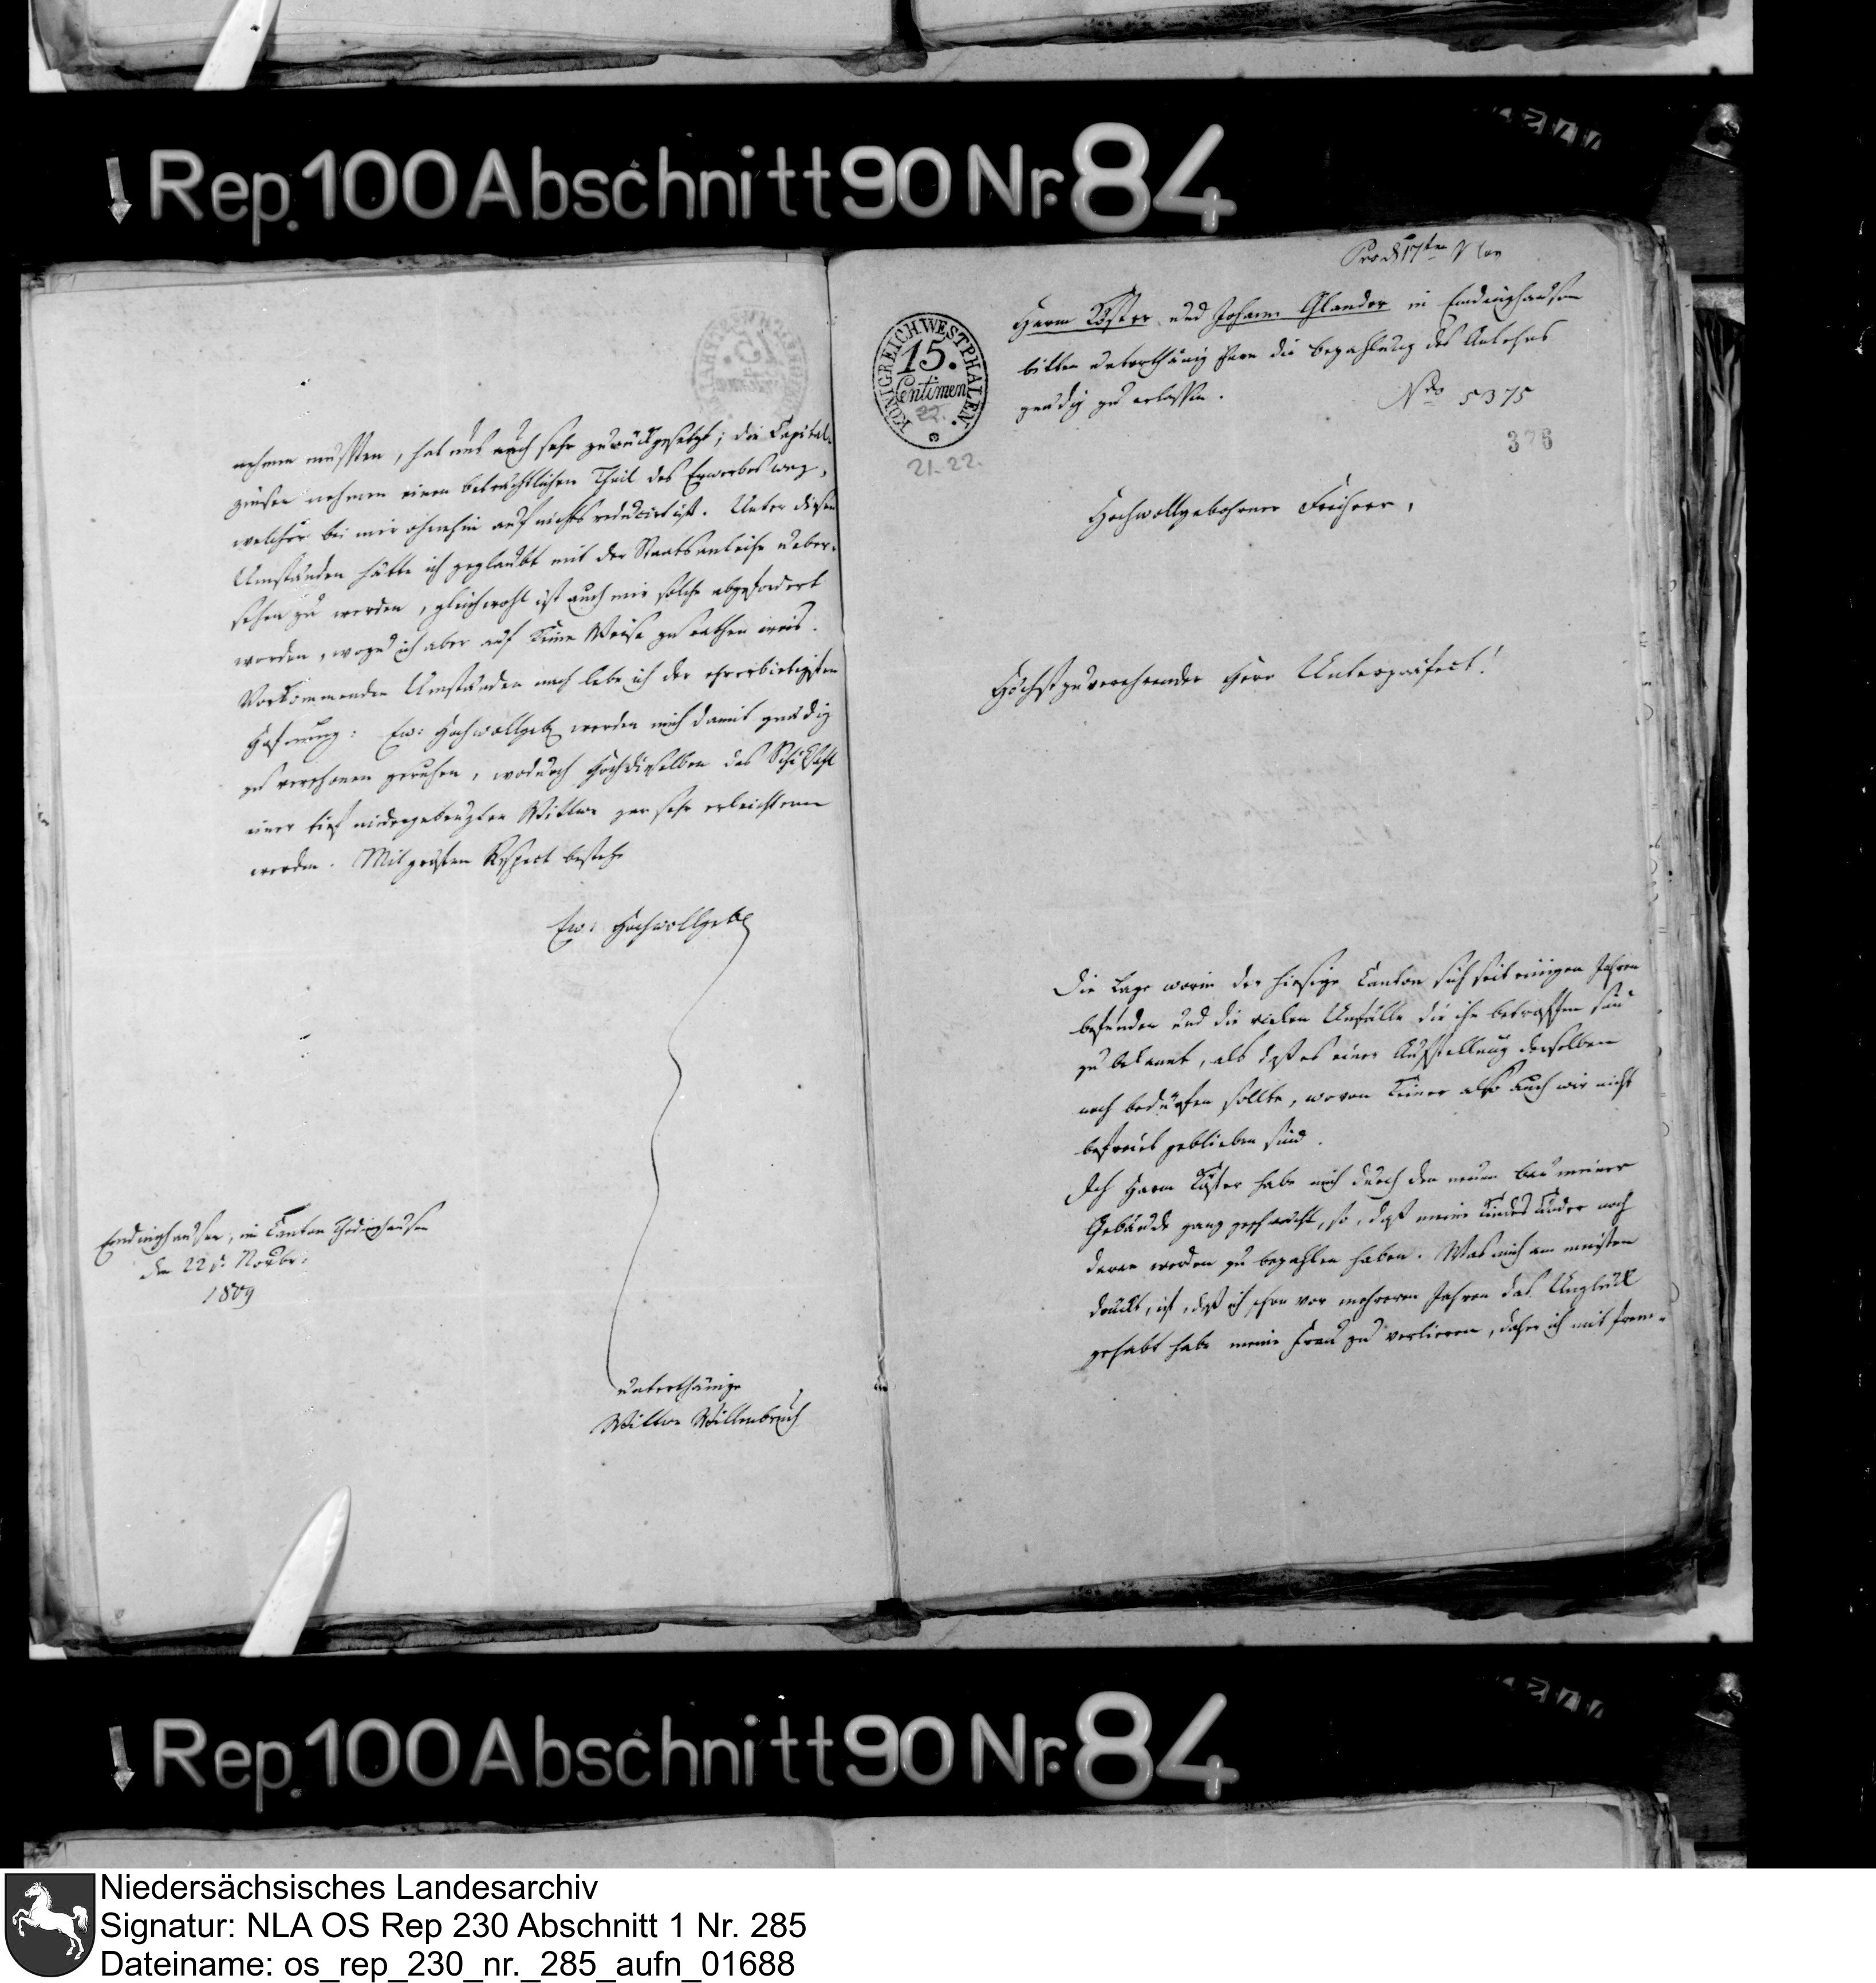 Rep. 100 Abschnitt 90 Nr. 84
nehmen mußten, hat uns auch sehr zurückgesetzt; die Capital-
zinsen nehmen einen beträchtlichen Theil des Erwerbes weg,
welcher bei mir ohnehin auf nichts reducirt ist. Unter diesen
Umständen hätte ich geglaubt mit der Staatsanleihe ueber-
sehen zu werden, gleichwohl ist auch mir solche abgefordert
worden, wozu ich aber auf keine Weise zu rathen weis.
Vorkommenden Umständen nach lebe ich der ehrerbietigsten
Hofnung: Ew: Hochwollgeb. werden mich damit gnädig
zu verschonen geruhen, wodurch Hochdieselben das Schicksahl
einer tief niedergebeugten Wittwe gar sehr erleichtern
werden. Mit grösten Respect bestehe
Ew: Hochwollgeb.
Emdinghausen, im Canton Thedinghausen
den 22t. Novbr.
1809
unterthänige
Wittwe Willenbruch
Prod 17ten Nov
KÖNIGREICH WESTPHALEN.
15.
Centimen
22.
C
21-22.
Harm Köster und Johann Glander in Emdinghausen
bitten unterthänig ihnen die bezahlung des Anlehns
gnädig zu erlassen.
Nro 5375
376
Hochwollgebohrner Freiherr,
Höchstzuverehrender Herr Unterpräfect!
Die Lage worin der hiesige Canton sich seit einigen Jahren
befunden und die vielen Unfälle die ihn betroffen sind
zu bekannt, als daß es einer Aufstellung derselben
noch bedürfen sollte, wovon keiner also auch wir nicht
befreiet geblieben sind.
Ich Harm Köster habe mich durch den neuen bau meiner
Gebäude ganz geschwächt, so, daß meine Kindes Kinder noch
daran werden zu bezahlen haben. Was mich am meisten
drückt, ist, daß ich schon vor mehreren Jahren das Unglück
gehabt habe meine Frau zu verlieren, daher ich mit frem-
Rep. 100 Abschnitt 90 Nr. 84
Niedersächsisches Landesarchiv
Signatur: NLA OS Rep 230 Abschnitt 1 Nr. 285
Dateiname: os_rep_230_nr._285_aufn_01688